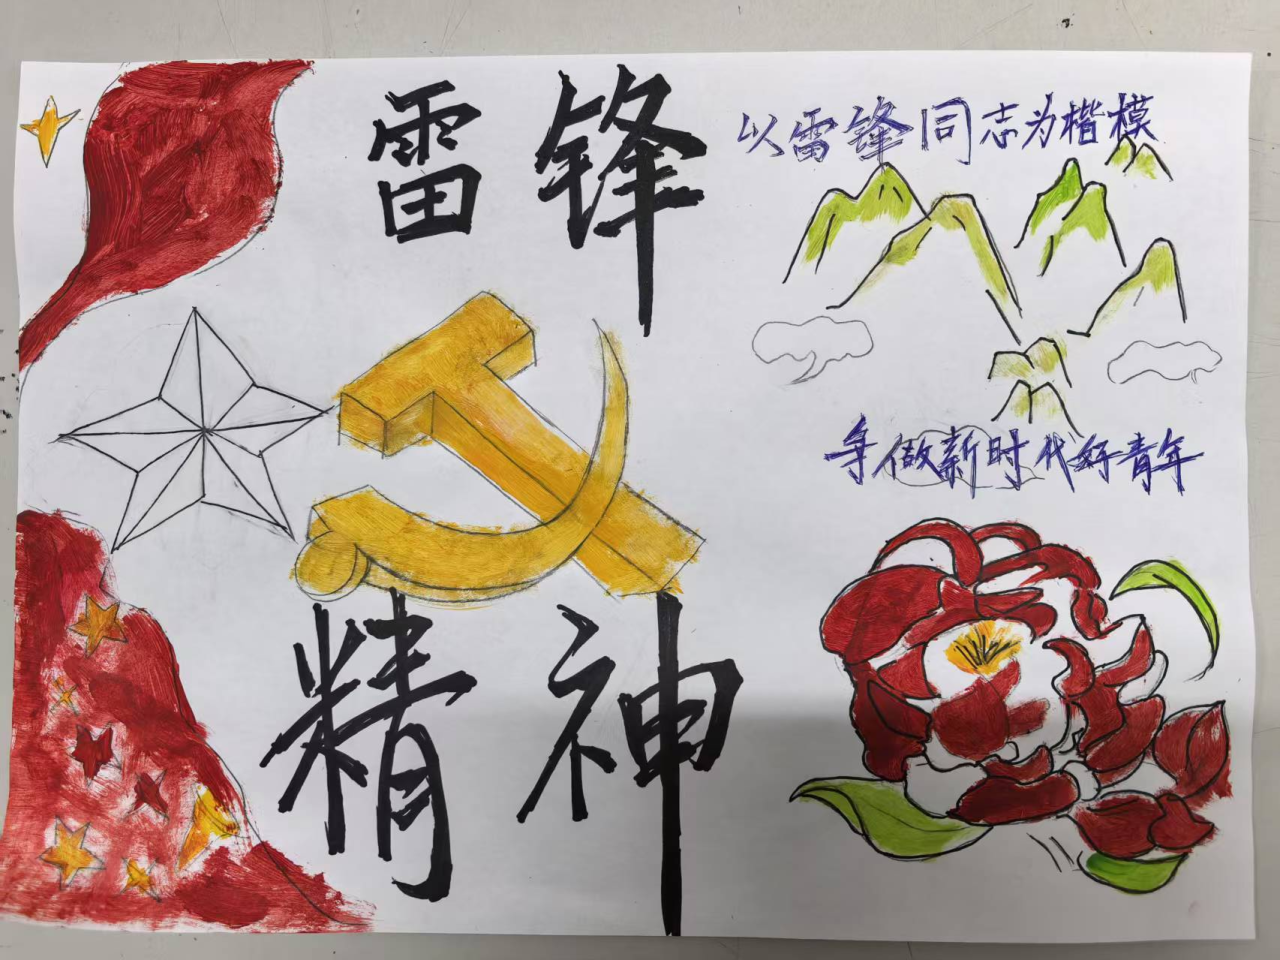 雷锋
精神
以雷锋同志为楷模
争做新时代好青年